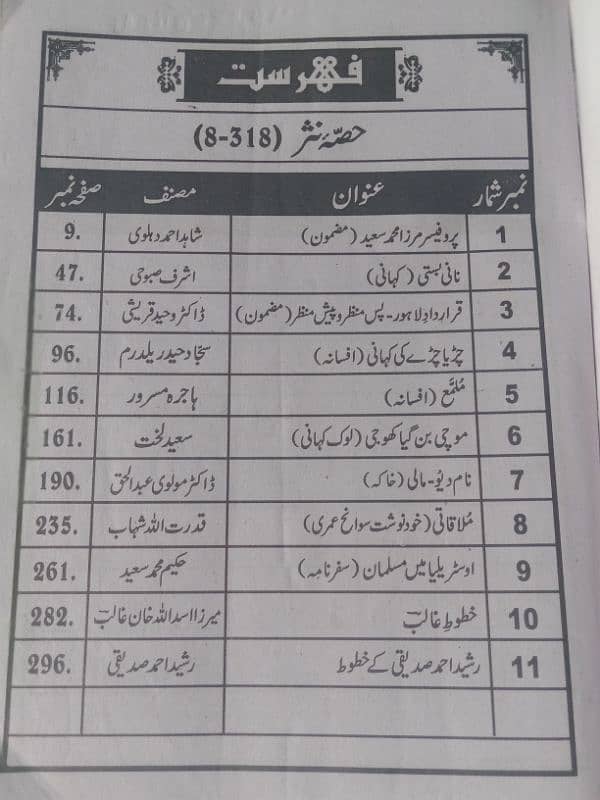 فہرست
حصّۂ نثر (8-318)
نمبر شمار عنوان مصنف صفحہ نمبر
1 پروفیسر مرزا محمد سعید (مضمون) شاہد احمد دہلوی 9.
2 نانی بستی (کہانی) اشرف صبوحی 47.
3 قراردادِ لاہور - پس منظر و پیش منظر (مضمون) ڈاکٹر وحید قریشی 74.
4 چڑیا چڑے کی کہانی (افسانہ) سجّاد حیدر یلدرم 96.
5 مُلمّع (افسانہ) ہاجرہ مسرور 116.
6 موچی بن گیا کھوجی (لوک کہانی) سعید لخت 161.
7 نام دیو - مالی (خاکہ) ڈاکٹر مولوی عبدالحق 190.
8 مُلاقاتی (خود نوشت سوانح عمری) قدرت اللہ شہاب 235.
9 اوسٹریلیا میں مسلمان (سفرنامہ) حکیم محمد سعید 261.
10 خطوطِ غالبؔ میرزا اسد اللہ خان غالبؔ 282.
11 رشید احمد صدیقی کے خطوط رشید احمد صدیقی 296.